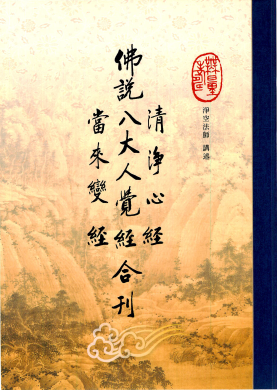 淨空法師 講述
清淨心經
佛說八大人覺經合刊
當來變經